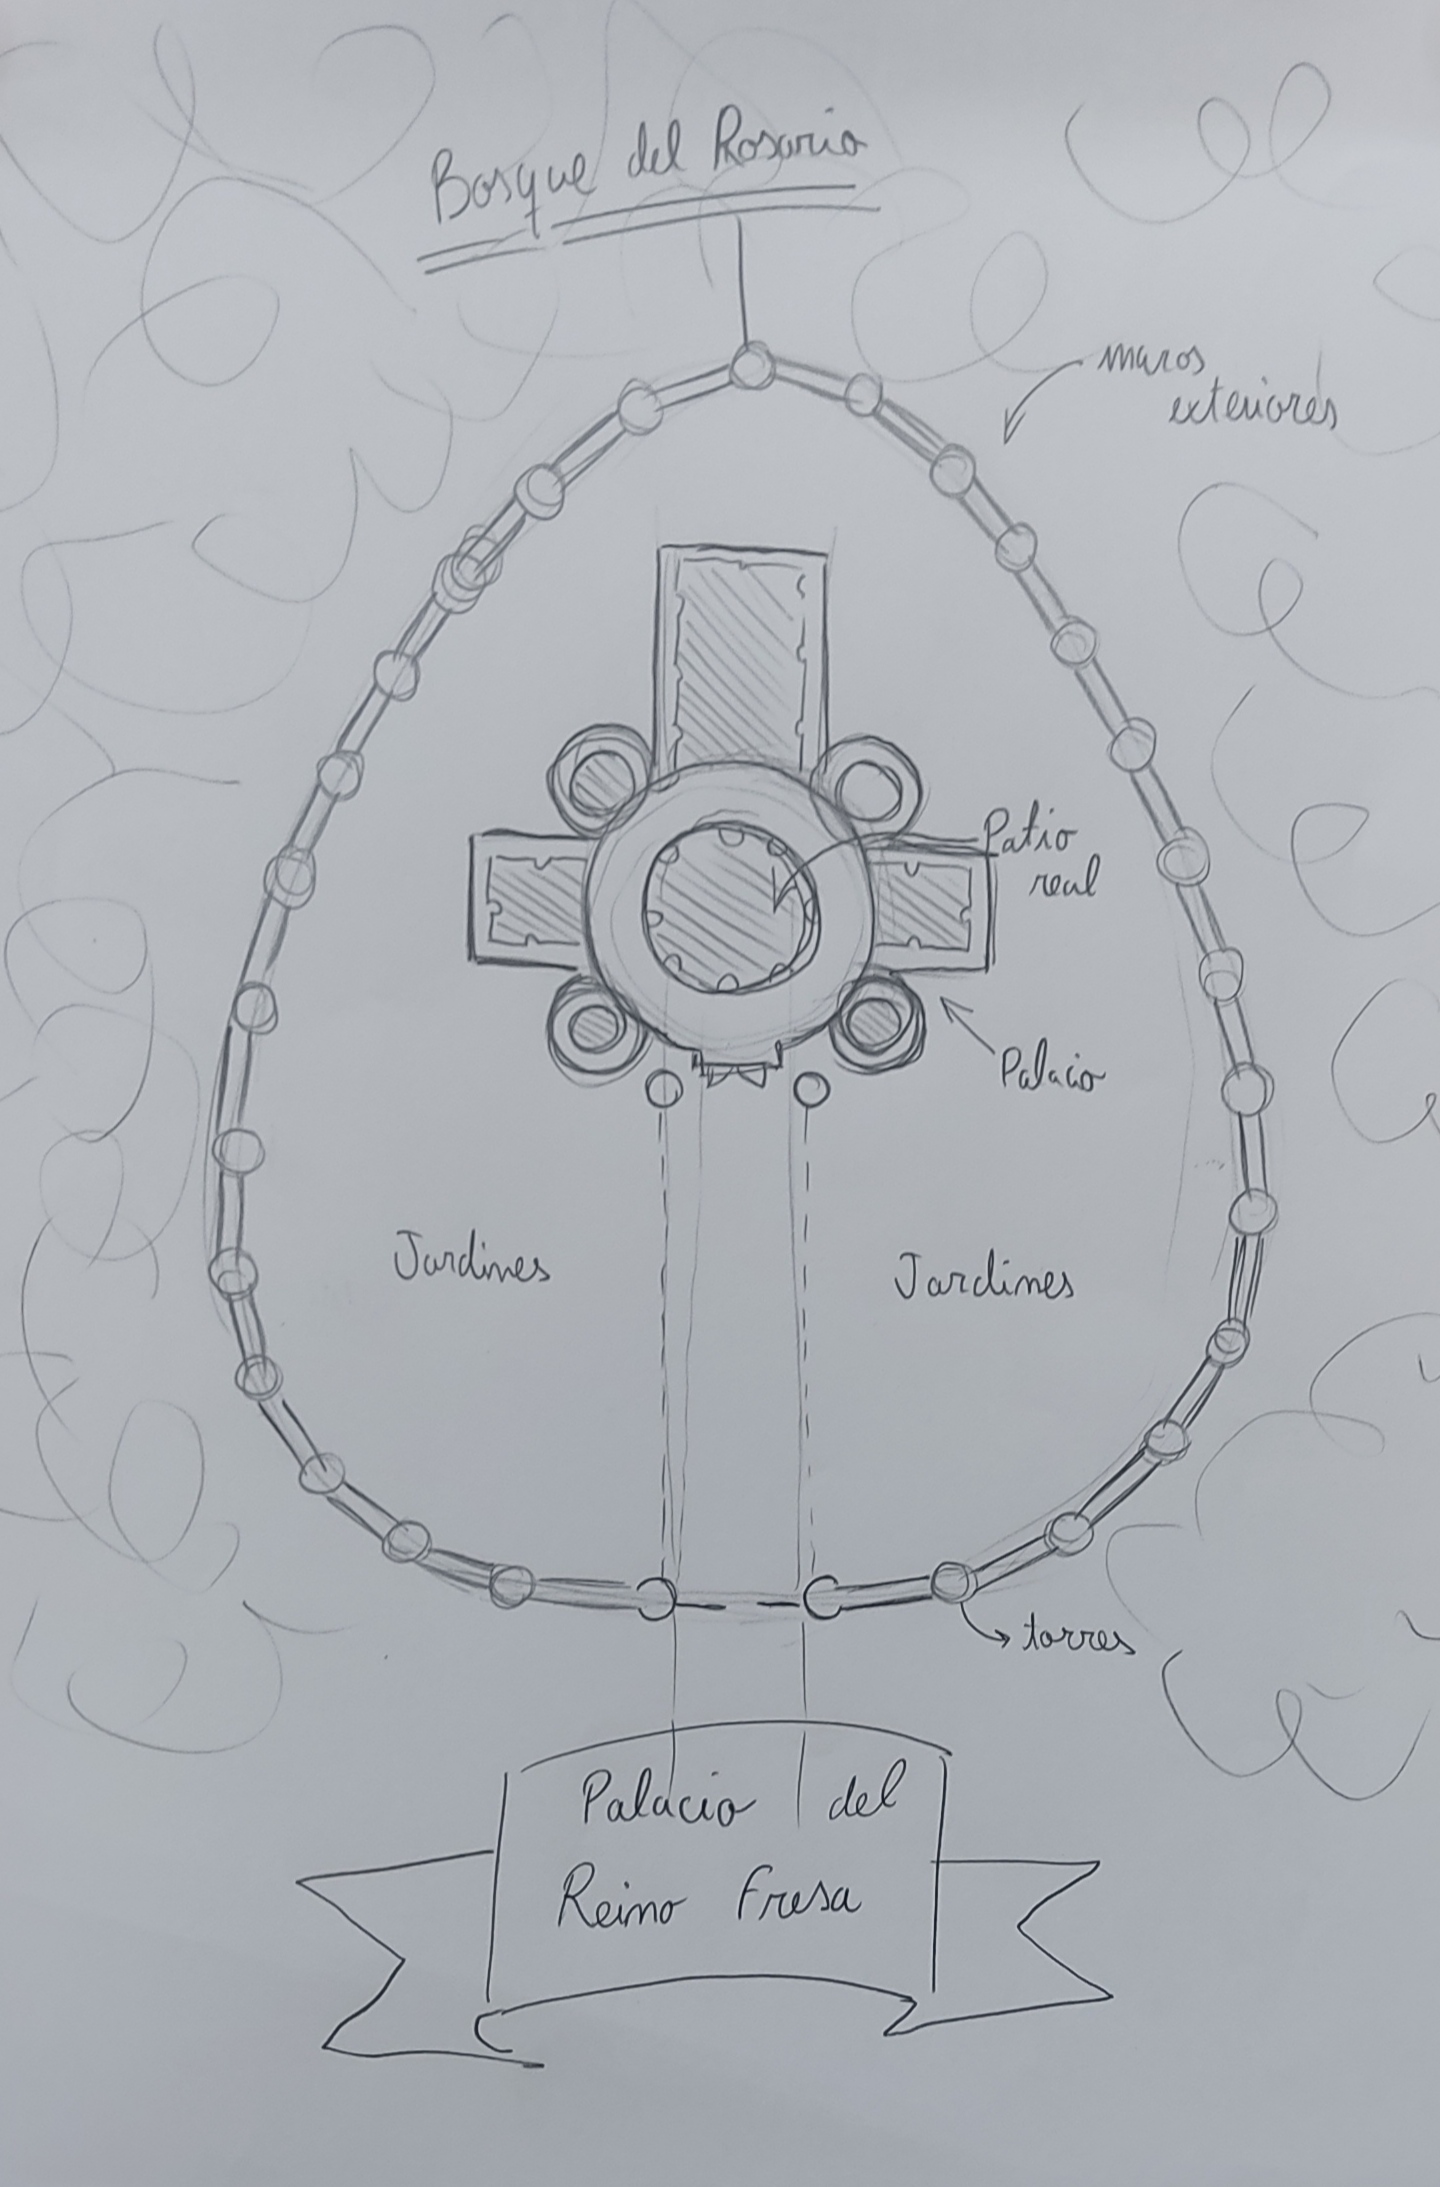 Bosque del Rosario
muros
exteriores
Patio
real
Palacio
Jardines
Jardines
torres
Palacio del
Reino Fresa